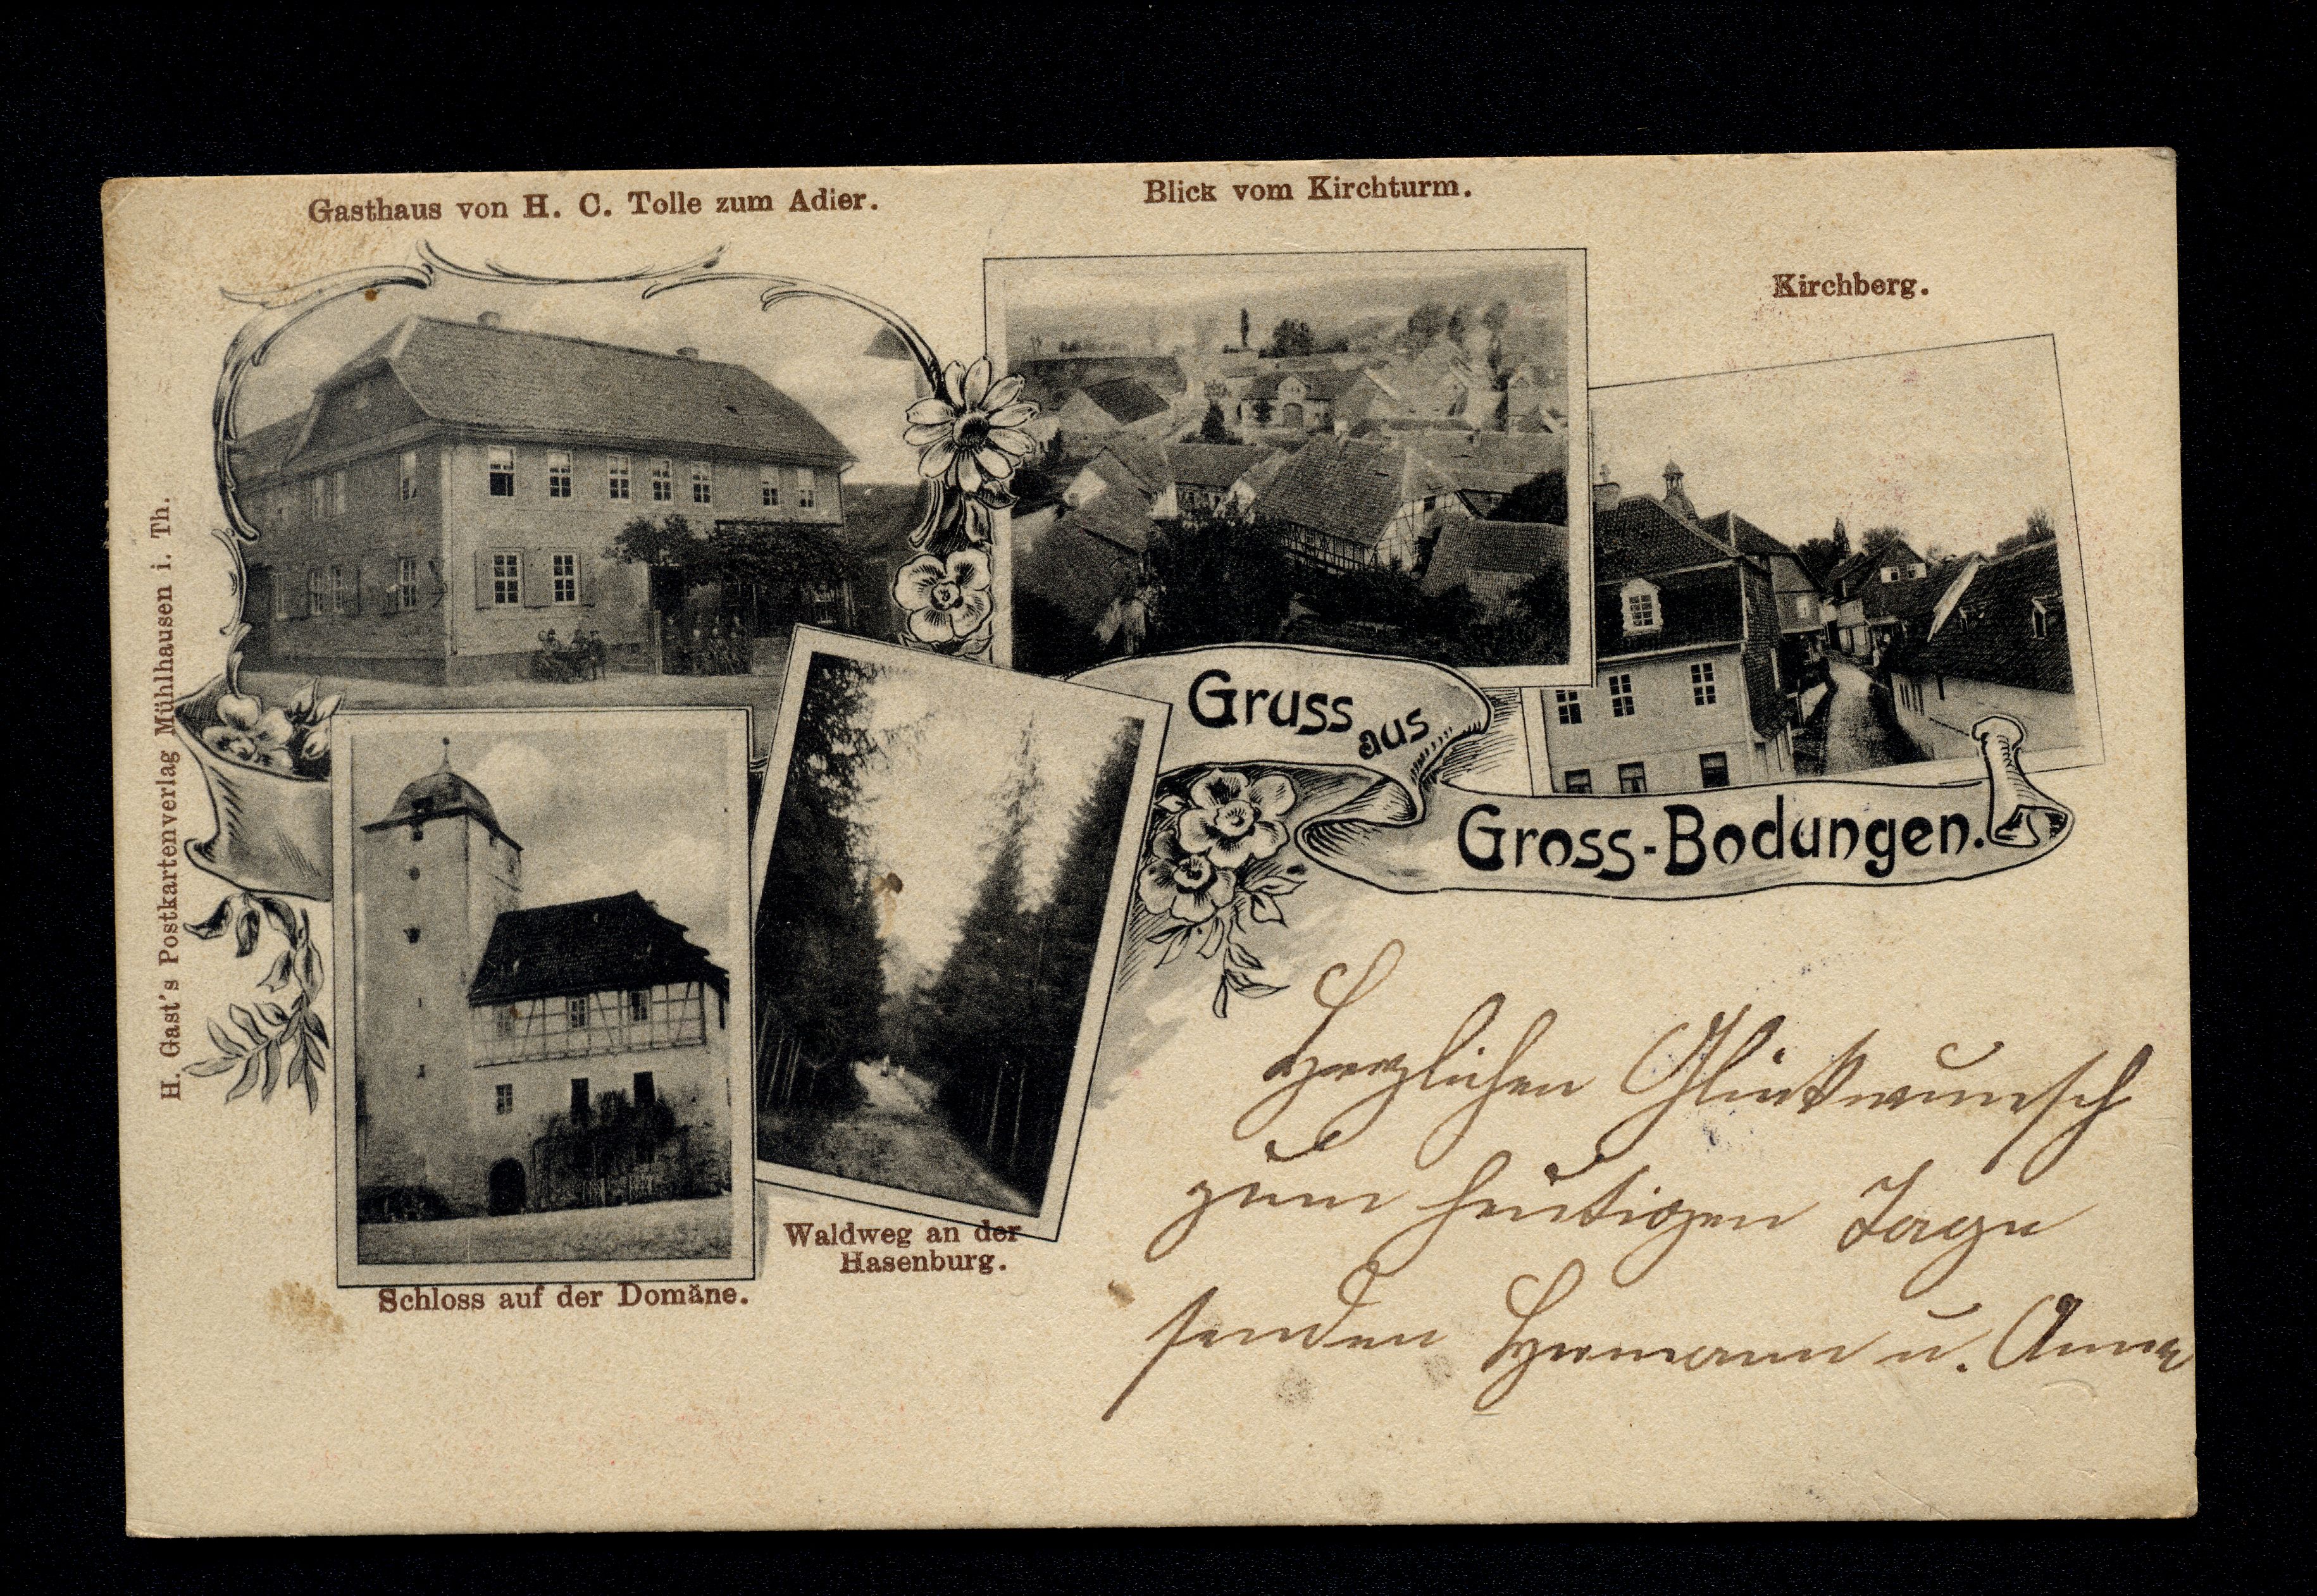 Gasthaus von H. C. Tolle zum Adler.
Blick vom Kirchturm.
Kirchberg.
H. Gast's Postkartenverlag Mühlhausen i. Th.
Gruss aus
Gross-Bodungen.
Waldweg an der
Hasenburg.
Schloss auf der Domäne.
Herzlichen Glückwunsch
zum heutigen Tage
senden Hermann u. Anna